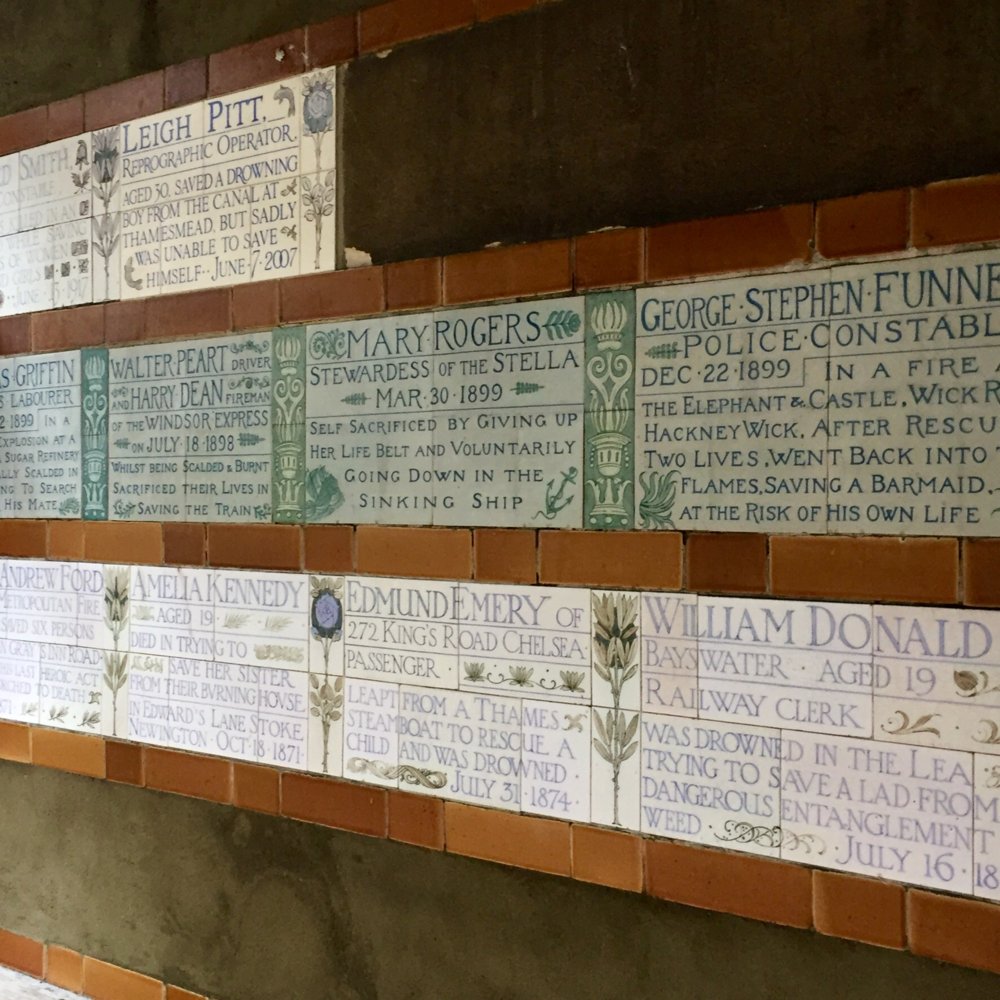 SMITH,
CONSTABLE
KILLED IN AN
WHILE SAVING
OF WOMEN
GIRLS
JUNE 13 1917
LEIGH PITT,
REPROGRAPHIC OPERATOR,
AGED 30, SAVED A DROWNING
BOY FROM THE CANAL AT
THAMESMEAD, BUT SADLY
WAS UNABLE TO SAVE
HIMSELF · JUNE · 7 · 2007
GRIFFIN
LABOURER
1899 IN A
EXPLOSION AT A
SUGAR REFINERY
SCALDED IN
TO SEARCH
HIS MATE
WALTER PEART DRIVER
AND HARRY DEAN FIREMAN
OF THE WINDSOR EXPRESS
ON JULY · 18 · 1898
WHILST BEING SCALDED & BURNT
SACRIFICED THEIR LIVES IN
SAVING THE TRAIN
MARY ROGERS
STEWARDESS OF THE STELLA
MAR · 30 · 1899
SELF SACRIFICED BY GIVING UP
HER LIFE BELT AND VOLUNTARILY
GOING DOWN IN THE
SINKING SHIP
GEORGE · STEPHEN · FUNNE
POLICE · CONSTABL
DEC · 22 · 1899 IN A FIRE A
THE ELEPHANT & CASTLE, WICK R
HACKNEY WICK, AFTER RESCU
TWO LIVES, WENT BACK INTO T
FLAMES, SAVING A BARMAID,
AT THE RISK OF HIS OWN LIFE
ANDREW FORD
METROPOLITAN FIRE
SAVED SIX PERSONS
IN GRAY'S INN ROAD
LAST HEROIC ACT
SCORCHED TO DEATH
1871
AMELIA KENNEDY
AGED 19
DIED IN TRYING TO
SAVE HER SISTER
FROM THEIR BVRNING HOUSE
IN EDWARD'S LANE STOKE
NEWINGTON · OCT · 18 · 1871 ·
EDMUND EMERY OF
272 KING'S ROAD CHELSEA ·
PASSENGER
LEAPT FROM A THAMES
STEAMBOAT TO RESCUE A
CHILD AND WAS DROWNED ·
JULY 31 · 1874 ·
WILLIAM DONALD
BAYSWATER · AGED 19
RAILWAY CLERK
WAS DROWNED IN THE LEA
TRYING TO SAVE A LAD FROM
DANGEROUS ENTANGLEMENT
WEED · JULY 16 · 18